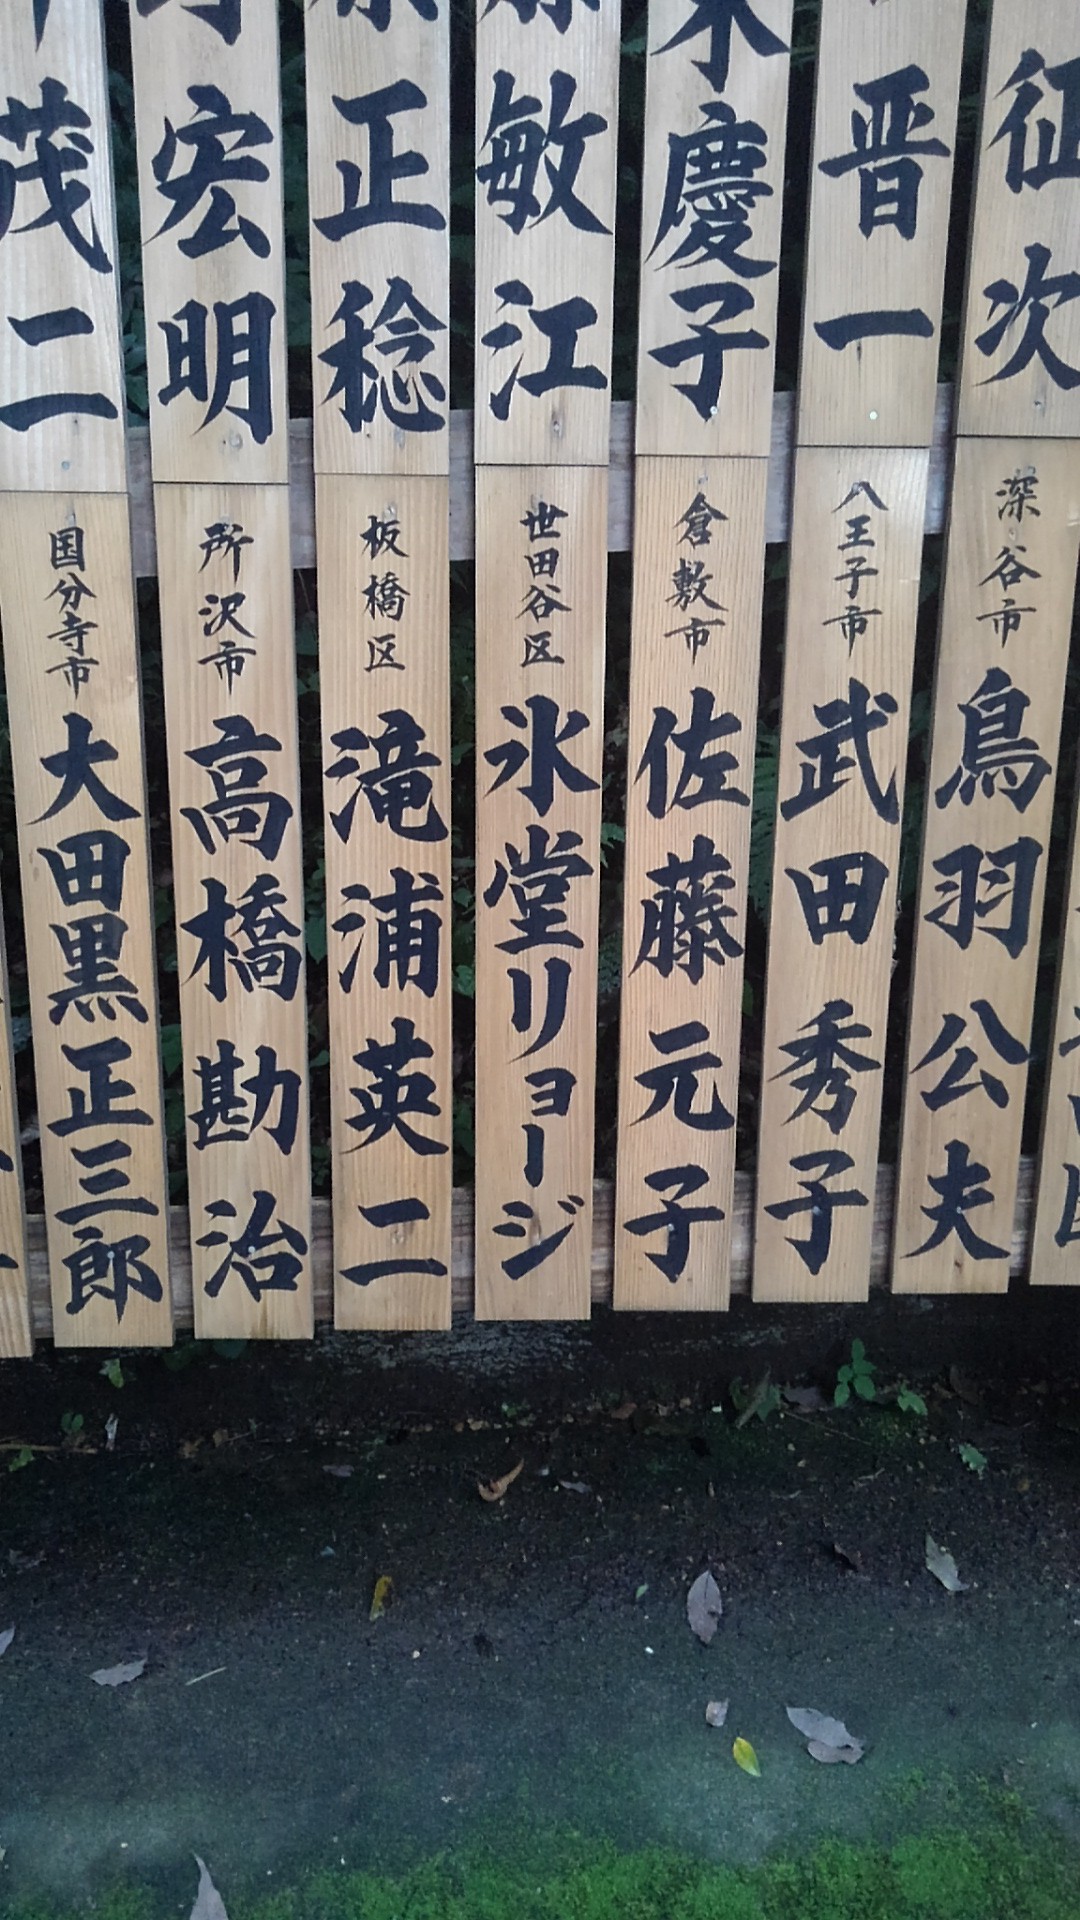 征次
晋一
慶子
敏江
正稔
宏明
茂二
深谷市 鳥羽公夫
八王子市 武田秀子
倉敷市 佐藤元子
世田谷区 氷堂リョージ
板橋区 滝浦英二
所沢市 高橋勘治
国分寺市 大田黒正三郎